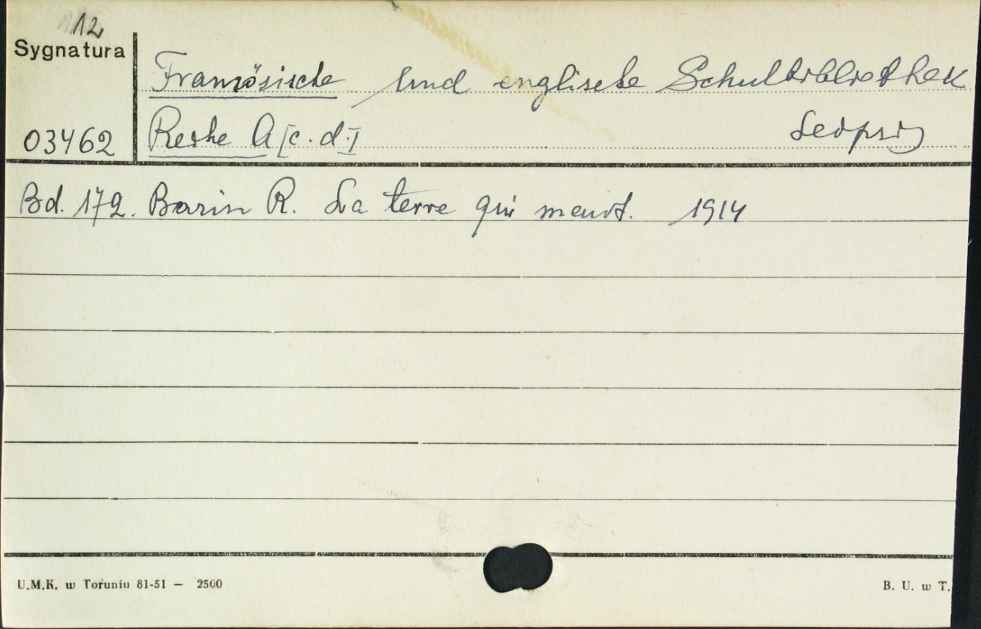 12
Sygnatura
Französische und englische Schulbibliothek
03462 Reihe A [c.d.] Leipzig
Bd. 172. Bazin R. La terre qui meurt. 1914
U.M.K. w Toruniu 81-51 — 2500 B. U. w T.